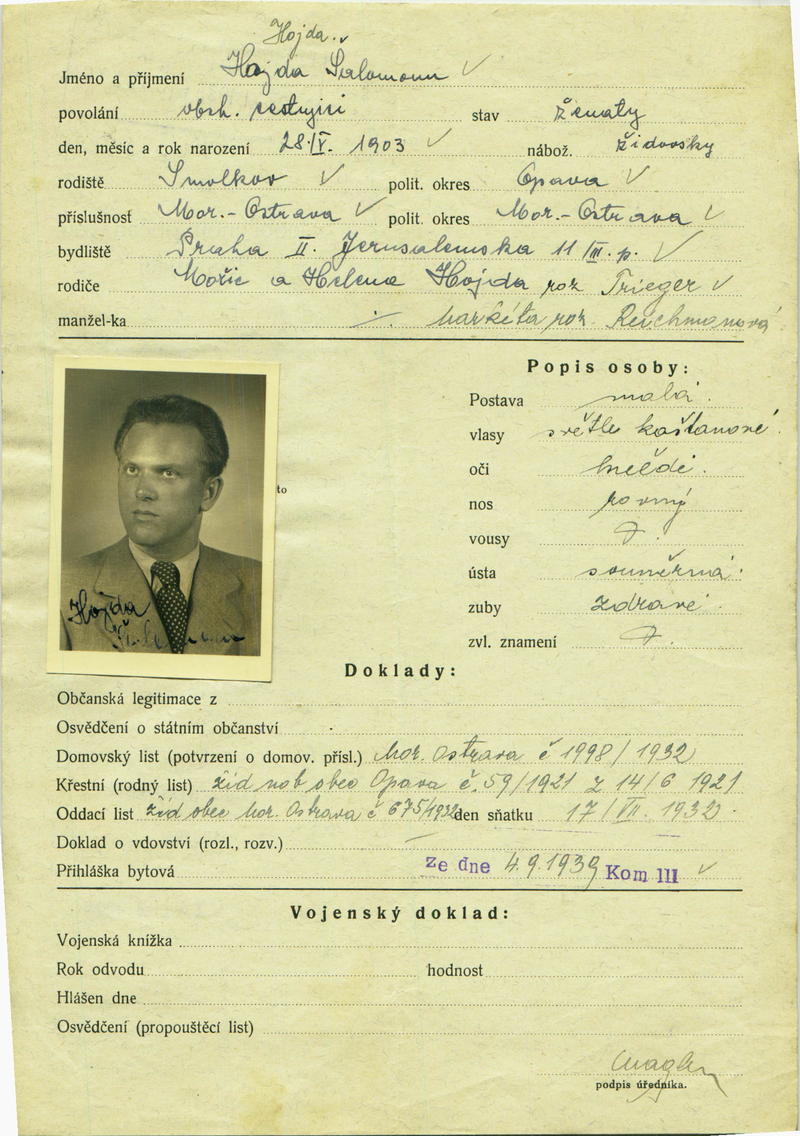 Hojda.
Jméno a příjmení Hojda Salomoun ✓
povolání obch. cestující stav ženatý
den, měsíc a rok narození 28./V. 1903 ✓ nábož. židovský
rodiště Smolkov ✓ polit. okres Opava ✓
příslušnost Mor.-Ostrava ✓ polit. okres Mor.-Ostrava ✓
bydliště Praha II. Jerusalemska 11 III. p. ✓
rodiče Možic a Helena Hojda roz Trieger ✓
manžel-ka ·/. Markéta roz. Reichmanová
Popis osoby:
Postava malá.
vlasy světle kaštanové.
oči hnědé.
to
nos rovný
vousy
ústa souměrná.
zuby zdravé.
zvl. znamení
Hojda
Doklady:
Občanská legitimace z
Osvědčení o státním občanství
Domovský list (potvrzení o domov. přísl.) Mor. Ostrava č 1998/1932
Křestní (rodný list) žid nob obec Opava č. 59/1921 z 14/6 1921
Oddací list žid obec Mor. Ostrava č 675/1932 den sňatku 17/VII. 1932.
Doklad o vdovství (rozl., rozv.) —
Přihláška bytová ze dne 4.9.1939 Kom III ✓
Vojenský doklad:
Vojenská knížka
Rok odvodu hodnost
Hlášen dne
Osvědčení (propouštěcí list)
podpis úředníka.